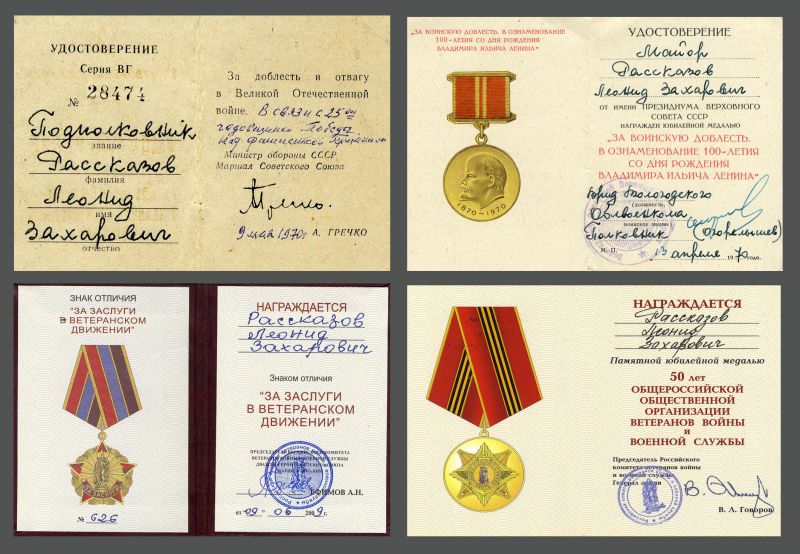 УДОСТОВЕРЕНИЕ
Серия ВГ
№ 28474
Подполковник
звание
Рассказов
фамилия
Леонид
имя
Захарович
отчество
За доблесть и отвагу
в Великой Отечественной
войне. В связи с 25ой
годовщиной Победы
над фашистской Германией
Министр обороны СССР
Маршал Советского Союза
9 мая 1970г. А. ГРЕЧКО
"ЗА ВОИНСКУЮ ДОБЛЕСТЬ. В ОЗНАМЕНОВАНИЕ
100-ЛЕТИЯ СО ДНЯ РОЖДЕНИЯ
ВЛАДИМИРА ИЛЬИЧА ЛЕНИНА"
1870-1970
УДОСТОВЕРЕНИЕ
Майор
Рассказов
Леонид Захарович
ОТ ИМЕНИ ПРЕЗИДИУМА ВЕРХОВНОГО
СОВЕТА СССР
НАГРАЖДЕН ЮБИЛЕЙНОЙ МЕДАЛЬЮ
"ЗА ВОИНСКУЮ ДОБЛЕСТЬ.
В ОЗНАМЕНОВАНИЕ 100-ЛЕТИЯ
СО ДНЯ РОЖДЕНИЯ
ВЛАДИМИРА ИЛЬИЧА ЛЕНИНА"
Врид Вологодского
(должность,
Облвоенкома
воинское звание
Полковник
М. П. 13 апреля 1970 года.
ЗНАК ОТЛИЧИЯ
"ЗА ЗАСЛУГИ
В ВЕТЕРАНСКОМ
ДВИЖЕНИИ"
№ 626
НАГРАЖДАЕТСЯ
Рассказов
Леонид
Захарович
Знаком отличия
"ЗА ЗАСЛУГИ
В ВЕТЕРАНСКОМ
ДВИЖЕНИИ"
ПРЕДСЕДАТЕЛЬ РОССИЙСКОГО КОМИТЕТА
ВЕТЕРАНОВ ВОЙНЫ И ВОЕННОЙ СЛУЖБЫ
ДВАЖДЫ ГЕРОЙ СОВЕТСКОГО СОЮЗА
ЕФИМОВ А.Н.
от "09" 06 2009г.
НАГРАЖДАЕТСЯ
Рассказов
Леонид
Захарович
Памятной юбилейной медалью
50 лет
ОБЩЕРОССИЙСКОЙ
ОБЩЕСТВЕННОЙ
ОРГАНИЗАЦИИ
ВЕТЕРАНОВ ВОЙНЫ
и
ВОЕННОЙ СЛУЖБЫ
Председатель Российского
комитета ветеранов войны
и военной службы
Генерал армии
В. Л. Говоров